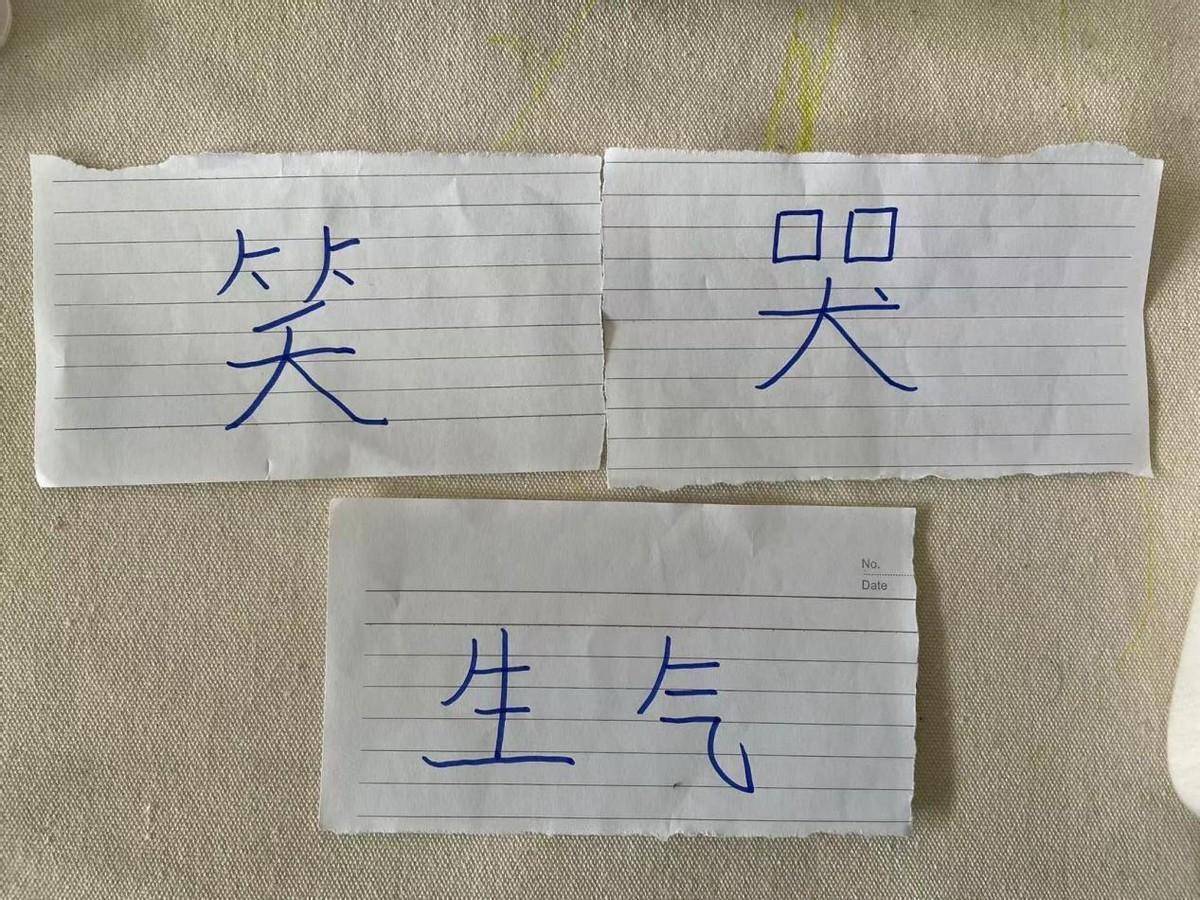 笑
哭
No.
Date
生气